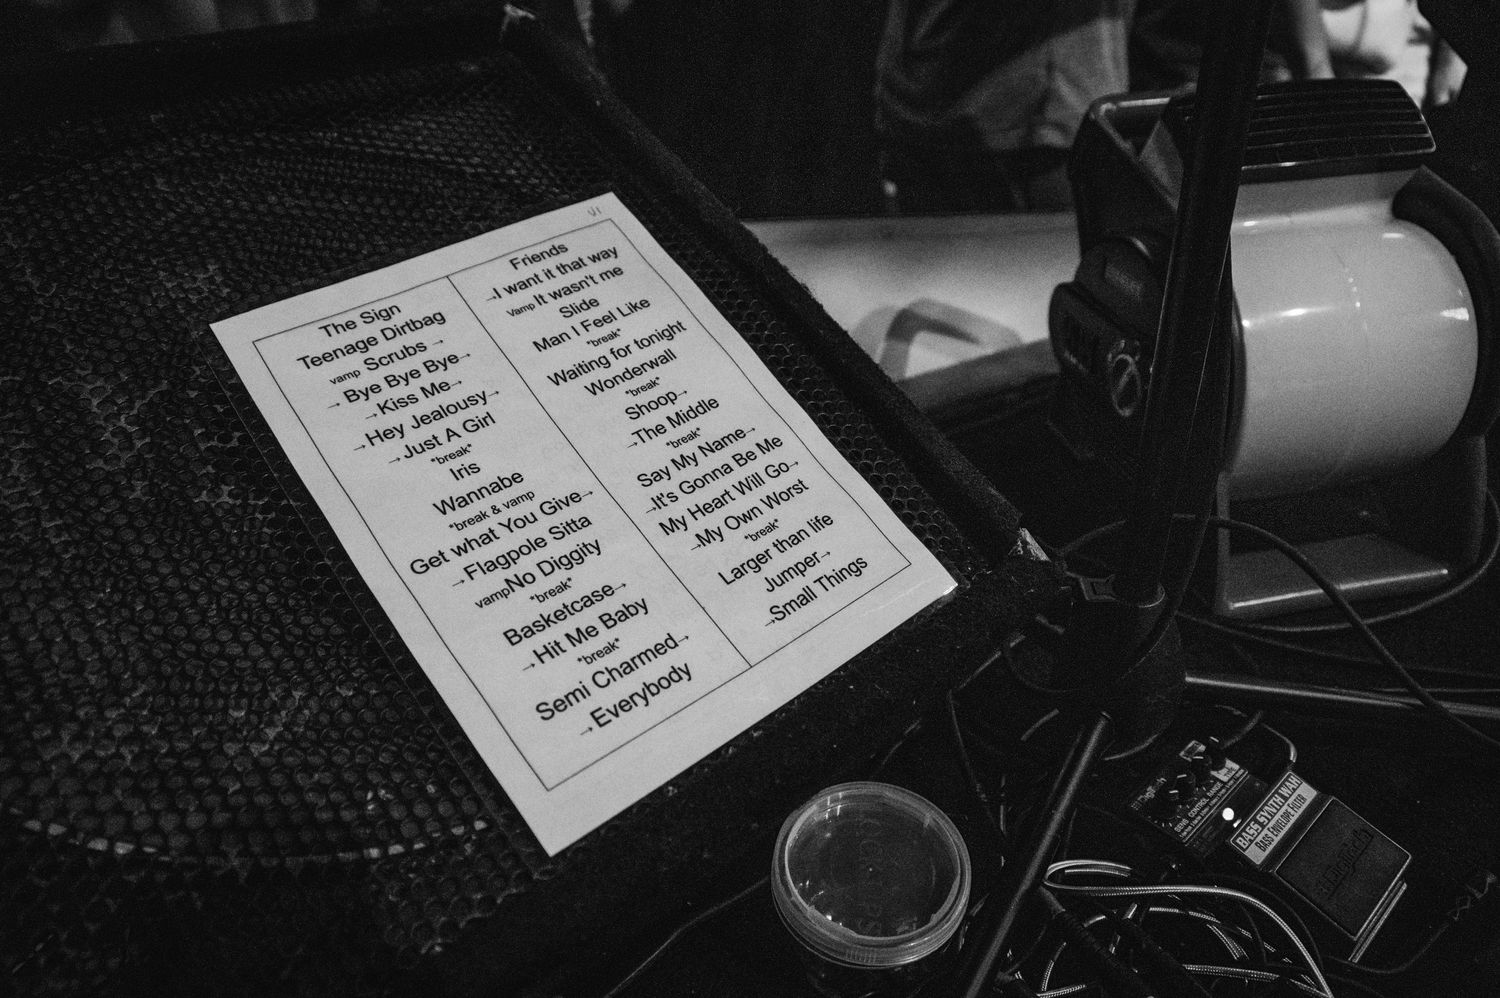 The Sign
Teenage Dirtbag
vamp Scrubs →
→ Bye Bye Bye→
→Kiss Me→
→Hey Jealousy→
→Just A Girl
*break*
Iris
Wannabe
*break & vamp
Get what You Give→
→Flagpole Sitta
vampNo Diggity
*break*
Basketcase→
→Hit Me Baby
*break*
Semi Charmed→
→Everybody
Friends
→I want it that way
Vamp It wasn't me
Slide
Man I Feel Like
*break*
Waiting for tonight
Wonderwall
*break*
Shoop→
→The Middle
*break*
Say My Name→
→It's Gonna Be Me
My Heart Will Go→
→My Own Worst
*break*
Larger than life
Jumper→
→Small Things
DigiTech
SENS CONTROL RANGE
BASS SYNTH WAH
BASS ENVELOPE FILTER
DigiTech